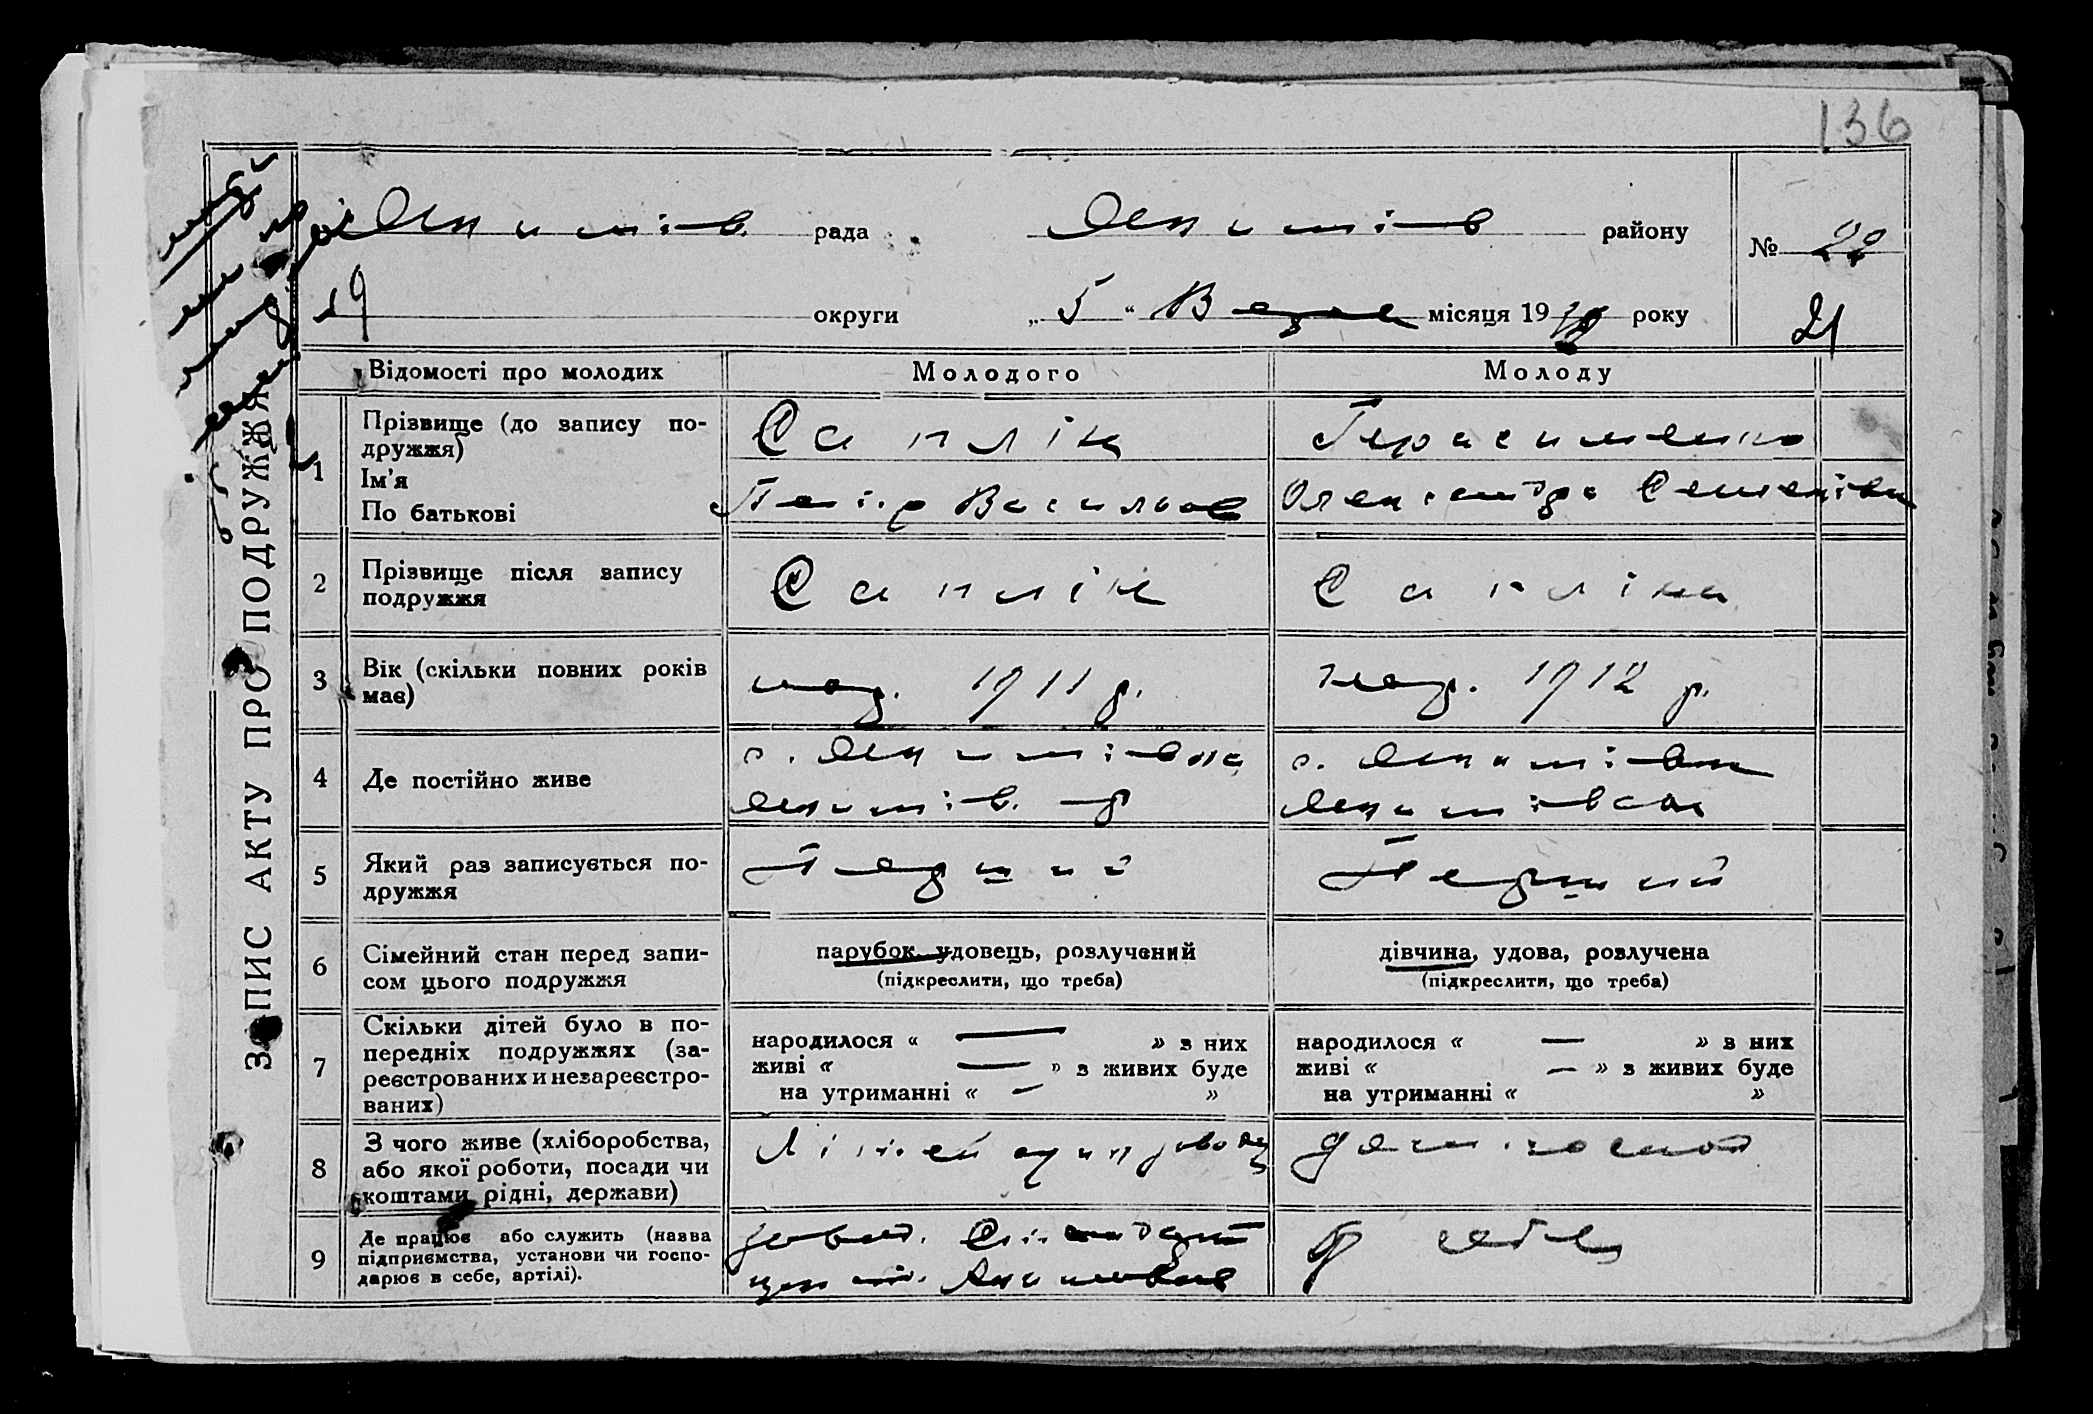 136
Якимів. рада Якимів району № 22
19 округи „ 5 “ Вере місяця 19 року 21
ЗАПИС АКТУ ПРО ПОДРУЖЖЯ
Відомості про молодих Молодого Молоду
1 Прізвище (до запису по-
дружжя) Саплін Герасименко
Ім'я
По батькові Петір Васильов Олександра Семенівна
2 Прізвище після запису
подружжя Саплін Сапліна
3 Вік (скільки повних років
має) нар. 1911 р. нар. 1912 р.
4 Де постійно живе с. Якимівка с. Якимівка
Якимів. р Якимівськ
5 Який раз записується по-
дружжя Перший Перший
6 Сімейний стан перед запи-
сом цього подружжя парубок, удовець, розлучений дівчина, удова, розлучена
(підкреслити, що треба) (підкреслити, що треба)
7 Скільки дітей було в по-
передніх подружжях (за-
реєстрованих и незареєстро-
ваних) народилося « — » з них народилося « — » з них
живі « — » з живих буде живі « — » з живих буде
на утриманні « — » на утриманні « »
8 З чого живе (хліборобства,
або якої роботи, посади чи
коштами рідні, держави)
9 Де працює або служить (назва
підприємства, установи чи госпо-
дарює в себе, артілі).